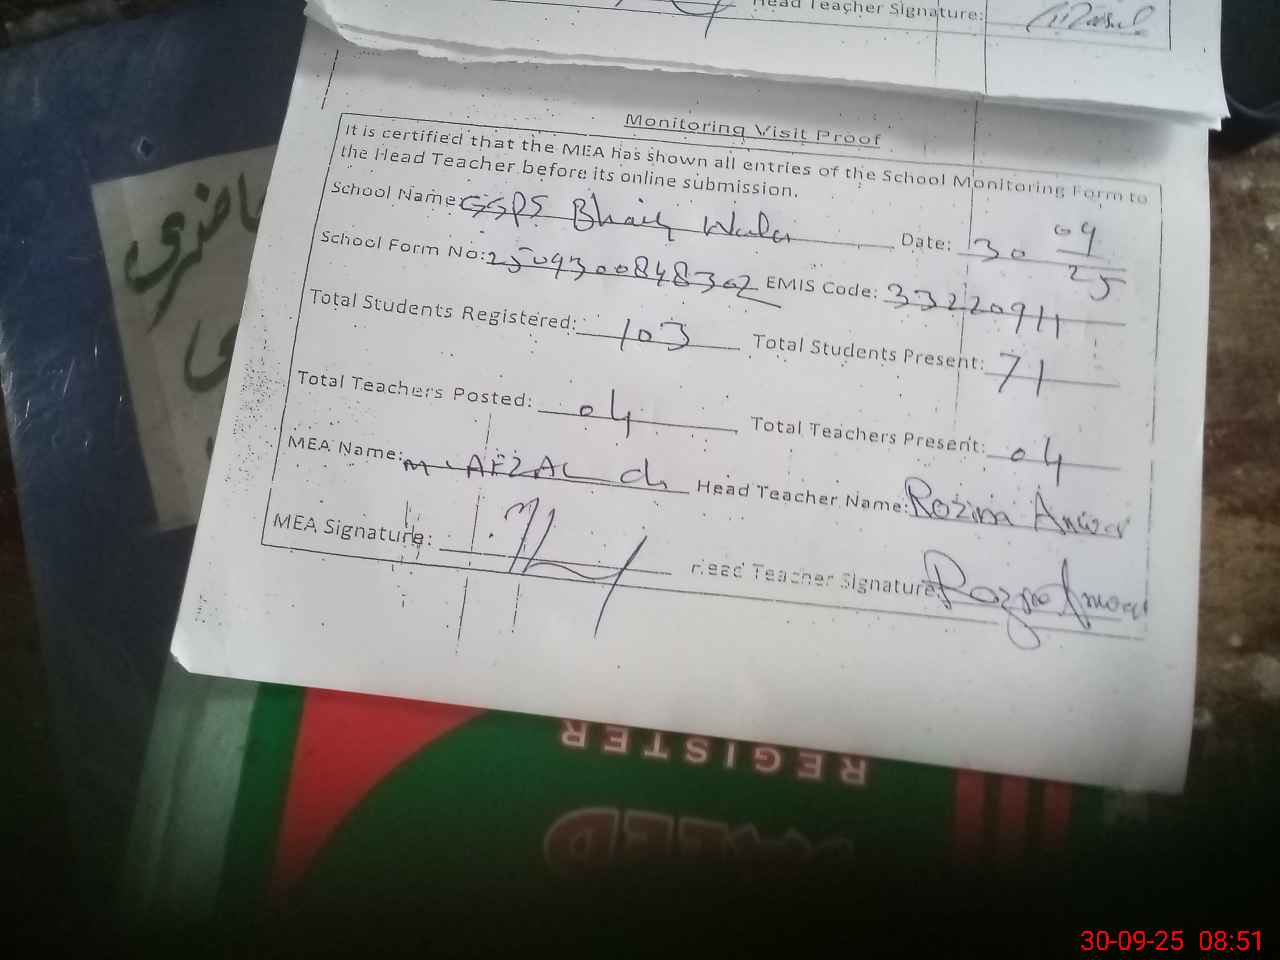 Head Teacher Signature:
Monitoring Visit Proof
It is certified that the MEA has shown all entries of the School Monitoring Form to
the Head Teacher before its online submission.
School Name: GGPS Bhaig Wala Date: 30 09 25
School Form No: 2509300848302 EMIS Code: 33220911
Total Students Registered: 103 Total Students Present: 71
Total Teachers Posted: 04 Total Teachers Present: 04
MEA Name: M. AFZAL ch Head Teacher Name: Rozina Anwar
MEA Signature: Head Teacher Signature: Rozina Anwar
حاضری
REGISTER
30-09-25 08:51